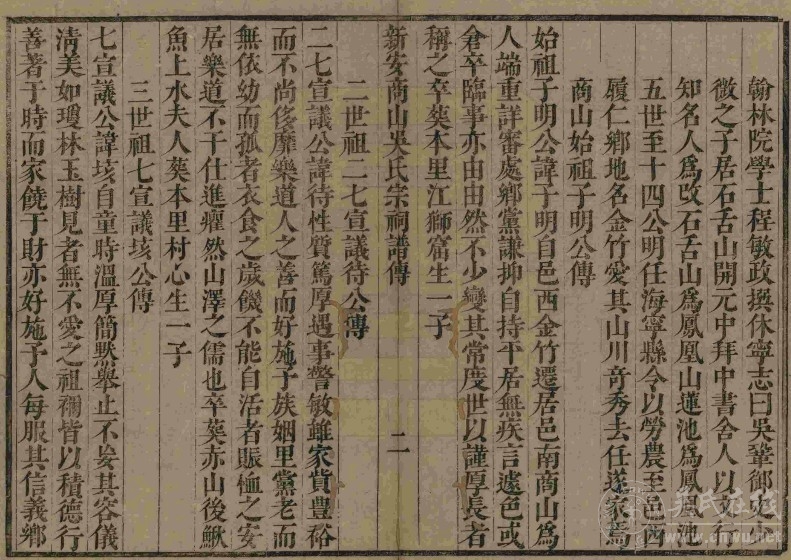 翰林院學士程敏政撰休寧志曰吳鞏御史少
微之子居石舌山開元中拜中書舍人以文行
知名人爲改石舌山爲鳳凰山蓮池爲鳳凰池
五世至十四公明任海寧縣令以勞農至邑西
履仁鄉地名金竹愛其山川竒秀去任遂家焉
商山始祖子明公傳
始祖子明公諱子明自邑西金竹遷居邑南商山爲
人端重詳審處鄉黨謙抑自持平居無疾言遽色或
倉卒臨事亦由由然不少變其常度世以謹厚長者
稱之卒葬本里江獅富生一子
新安商山吳氏宗祠譜傳
二
二世祖二七宣議待公傳
二七宣議公諱待性質篤厚遇事警敏雖家貲豊裕
而不尚侈靡樂道人之善而好施予族姻里黨老而
無依幼而孤者衣食之歲饑不能自活者賑恤之安
居樂道不干仕進癯然山澤之儒也卒葬赤山後鰍
魚上水夫人葬本里村心生一子
三世祖七宣議垓公傳
七宣議公諱垓自童時溫厚簡默舉止不妄其容儀
淸美如瓊林玉樹見者無不愛之祖禰皆以積德行
善著于時而家饒于財亦好施予人每服其信義鄉
吳氏在線
.cnwu.net